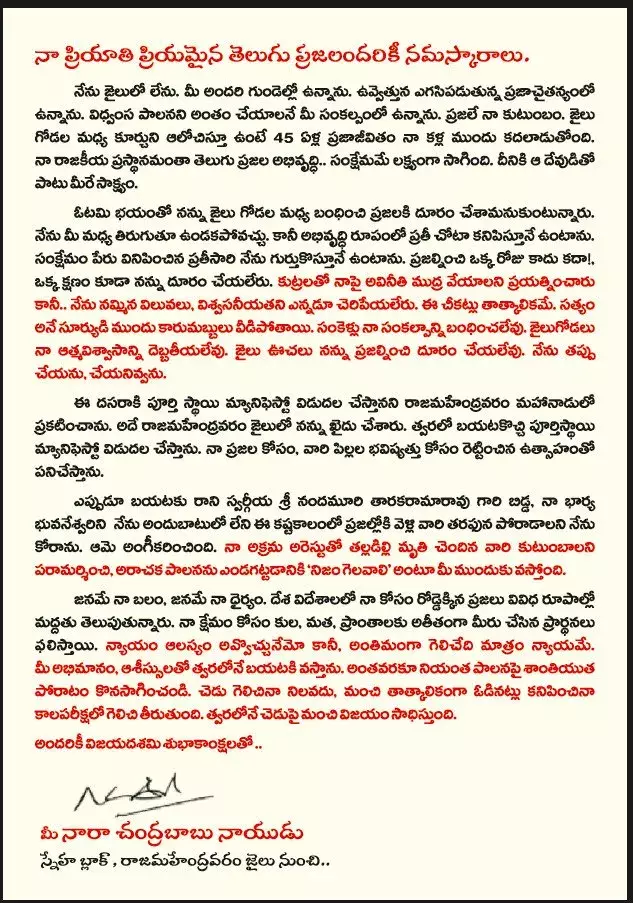 నా ప్రియాతి ప్రియమైన తెలుగు ప్రజలందరికీ నమస్కారాలు.
నేను జైలులో లేను. మీ అందరి గుండెల్లో ఉన్నాను. ఉవ్వెత్తున ఎగసిపడుతున్న ప్రజాచైతన్యంలో
ఉన్నాను. విధ్వంస పాలనని అంతం చేయాలనే మీ సంకల్పంలో ఉన్నాను. ప్రజలే నా కుటుంబం. జైలు
గోడల మధ్య కూర్చుని ఆలోచిస్తూ ఉంటే 45 ఏళ్ల ప్రజాజీవితం నా కళ్ల ముందు కదలాడుతోంది.
నా రాజకీయ ప్రస్థానమంతా తెలుగు ప్రజల అభివృద్ధి.. సంక్షేమమే లక్ష్యంగా సాగింది. దీనికి ఆ దేవుడితో
పాటు మీరే సాక్ష్యం.
ఓటమి భయంతో నన్ను జైలు గోడల మధ్య బంధించి ప్రజలకి దూరం చేశామనుకుంటున్నారు.
నేను మీ మధ్య తిరుగుతూ ఉండకపోవచ్చు. కానీ అభివృద్ధి రూపంలో ప్రతీ చోటా కనిపిస్తూనే ఉంటాను.
సంక్షేమం పేరు వినిపించిన ప్రతీసారి నేను గుర్తుకొస్తూనే ఉంటాను. ప్రజల్నించి ఒక్క రోజు కాదు కదా!,
ఒక్క క్షణం కూడా నన్ను దూరం చేయలేరు. కుట్రలతో నాపై అవినీతి ముద్ర వేయాలని ప్రయత్నించారు
కానీ.. నేను నమ్మిన విలువలు, విశ్వసనీయతని ఎన్నడూ చెరిపేయలేరు. ఈ చీకట్లు తాత్కాలికమే. సత్యం
అనే సూర్యుడి ముందు కారుమబ్బులు వీడిపోతాయి. సంకెళ్లు నా సంకల్పాన్ని బంధించలేవు. జైలుగోడలు
నా ఆత్మవిశ్వాసాన్ని దెబ్బతీయలేవు. జైలు ఊచలు నన్ను ప్రజల్నించి దూరం చేయలేవు. నేను తప్పు
చేయను, చేయనివ్వను.
ఈ దసరాకి పూర్తి స్థాయి మ్యానిఫెస్టో విడుదల చేస్తానని రాజమహేంద్రవరం మహానాడులో
ప్రకటించాను. అదే రాజమహేంద్రవరం జైలులో నన్ను ఖైదు చేశారు. త్వరలో బయటకొచ్చి పూర్తిస్థాయి
మ్యానిఫెస్టో విడుదల చేస్తాను. నా ప్రజల కోసం, వారి పిల్లల భవిష్యత్తు కోసం రెట్టించిన ఉత్సాహంతో
పనిచేస్తాను.
ఎప్పుడూ బయటకు రాని స్వర్గీయ శ్రీ నందమూరి తారకరామారావు గారి బిడ్డ, నా భార్య
భువనేశ్వరిని నేను అందుబాటులో లేని ఈ కష్టకాలంలో ప్రజల్లోకి వెళ్లి వారి తరఫున పోరాడాలని నేను
కోరాను. ఆమె అంగీకరించింది. నా అక్రమ అరెస్టుతో తల్లడిల్లి మృతి చెందిన వారి కుటుంబాలని
పరామర్శించి, అరాచక పాలనను ఎండగట్టడానికి ‘నిజం గెలవాలి’ అంటూ మీ ముందుకు వస్తోంది.
జనమే నా బలం, జనమే నా ధైర్యం. దేశ విదేశాలలో నా కోసం రోడ్డెక్కిన ప్రజలు వివిధ రూపాల్లో
మద్దతు తెలుపుతున్నారు. నా క్షేమం కోసం కుల, మత, ప్రాంతాలకు అతీతంగా మీరు చేసిన ప్రార్థనలు
ఫలిస్తాయి. న్యాయం ఆలస్యం అవ్వొచ్చునేమో కానీ, అంతిమంగా గెలిచేది మాత్రం న్యాయమే.
మీ అభిమానం, ఆశీస్సులతో త్వరలోనే బయటకి వస్తాను. అంతవరకూ నియంత పాలనపై శాంతియుత
పోరాటం కొనసాగించండి. చెడు గెలిచినా నిలవదు, మంచి తాత్కాలికంగా ఓడినట్లు కనిపించినా
కాలపరీక్షలో గెలిచి తీరుతుంది. త్వరలోనే చెడుపై మంచి విజయం సాధిస్తుంది.
అందరికీ విజయదశమి శుభాకాంక్షలతో..
మీ నారా చంద్రబాబు నాయుడు
స్నేహ బ్లాక్, రాజమహేంద్రవరం జైలు నుంచి..